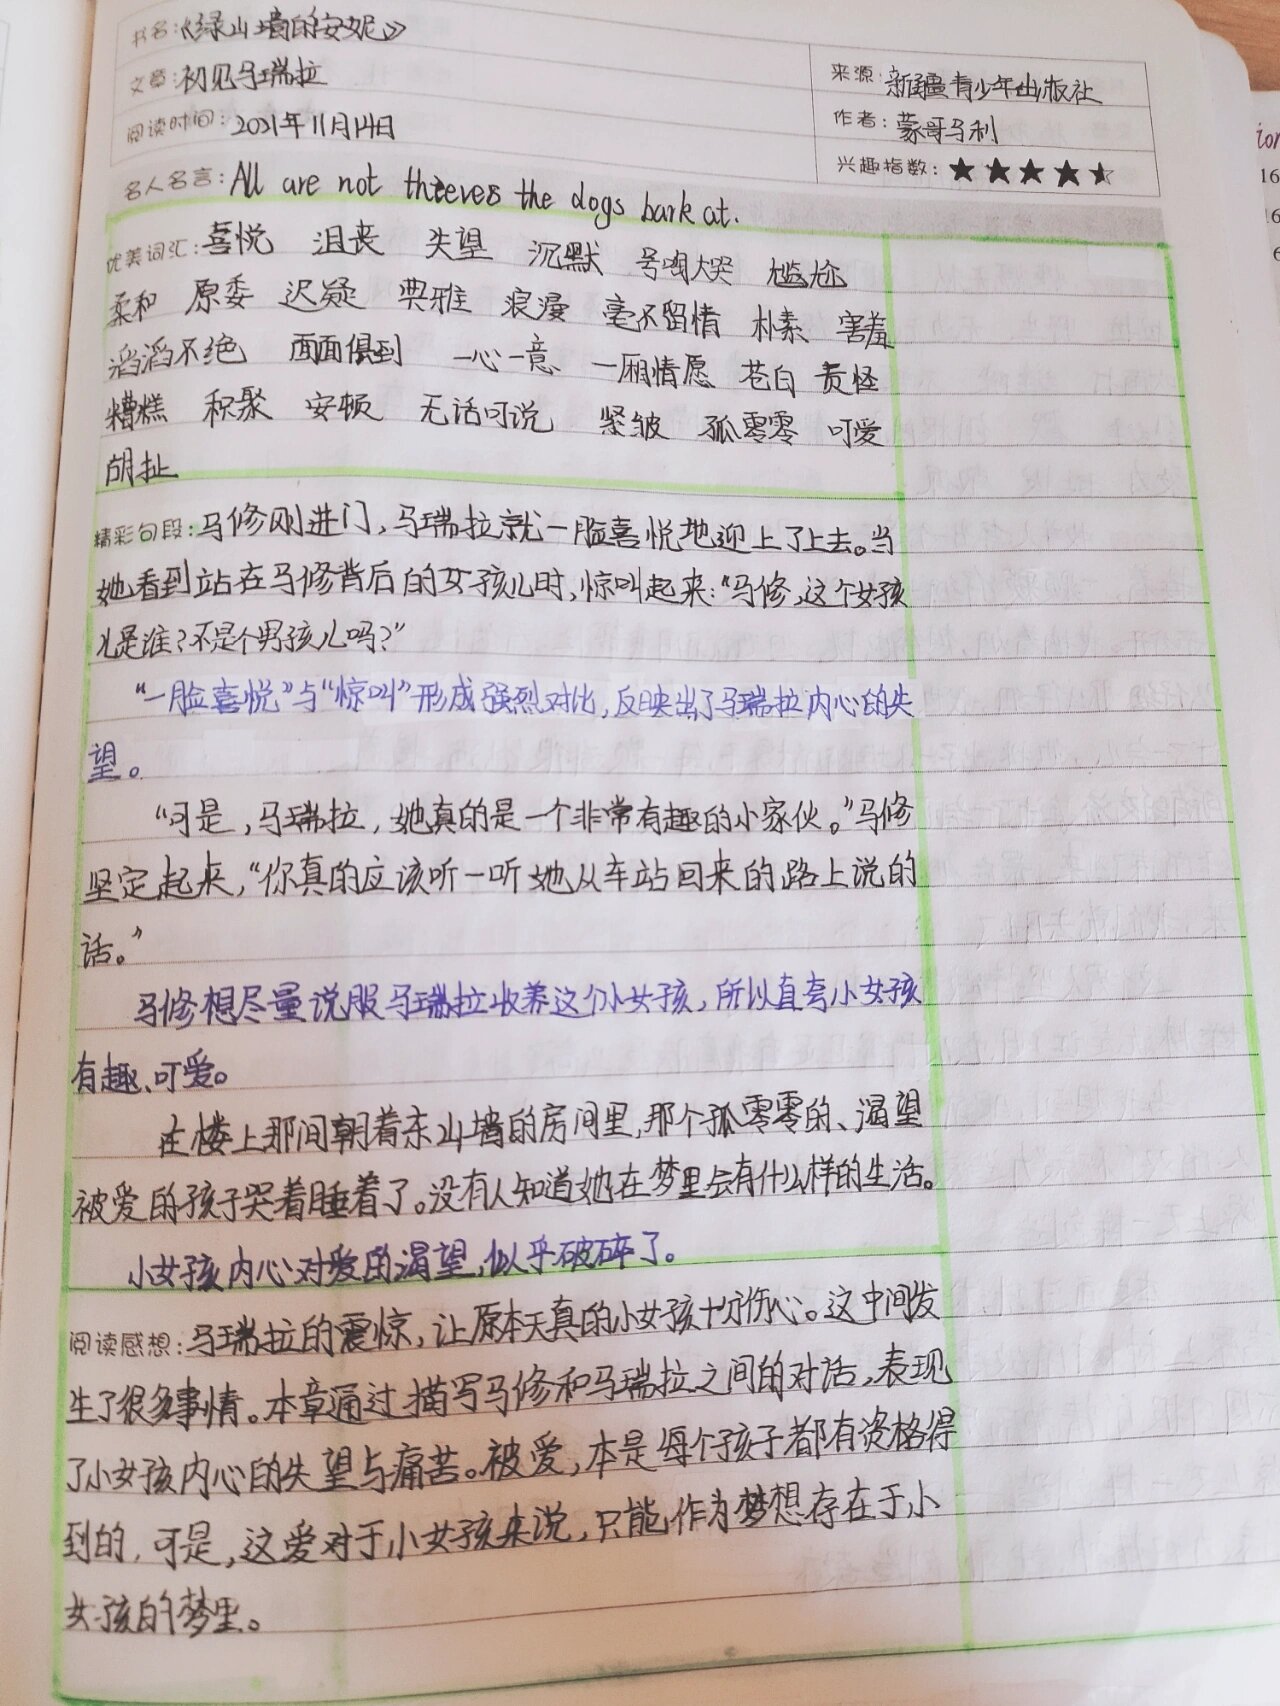 书名:《绿山墙的安妮》
文章:初见马瑞拉
阅读时间:2021年11月14日
来源:新疆青少年出版社
作者:蒙哥马利
兴趣指数:★★★★
名人名言:All are not thieves the dogs bark at.
优美词汇:喜悦 沮丧 失望 沉默 号啕大哭 尴尬
柔和 原委 迟疑 典雅 浪漫 毫不留情 朴素 害羞
滔滔不绝 面面俱到 一心一意 一厢情愿 苍白 责怪
糟糕 积聚 安顿 无话可说 紧皱 孤零零 可爱
胡扯
精彩句段:马修刚进门,马瑞拉就一脸喜悦地迎上了上去。当
她看到站在马修背后的女孩儿时,惊叫起来:“马修,这个女孩
儿是谁?不是个男孩儿吗?”
“一脸喜悦”与“惊叫”形成强烈对比,反映出了马瑞拉内心的失
望。
“可是,马瑞拉,她真的是一个非常有趣的小家伙。”马修
坚定起来,“你真的应该听一听她从车站回来的路上说的
话。”
马修想尽量说服马瑞拉收养这个小女孩,所以直夸小女孩
有趣、可爱。
在楼上那间朝着东山墙的房间里,那个孤零零的、渴望
被爱的孩子哭着睡着了。没有人知道她在梦里会有什么样的生活。
小女孩内心对爱的渴望,似乎破碎了。
阅读感想:马瑞拉的震惊,让原本天真的小女孩十分伤心。这中间发
生了很多事情。本章通过描写马修和马瑞拉之间的对话,表现
了小女孩内心的失望与痛苦。被爱,本是每个孩子都有资格得
到的,可是,这爱对于小女孩来说,只能作为梦想存在于小
女孩的梦里。